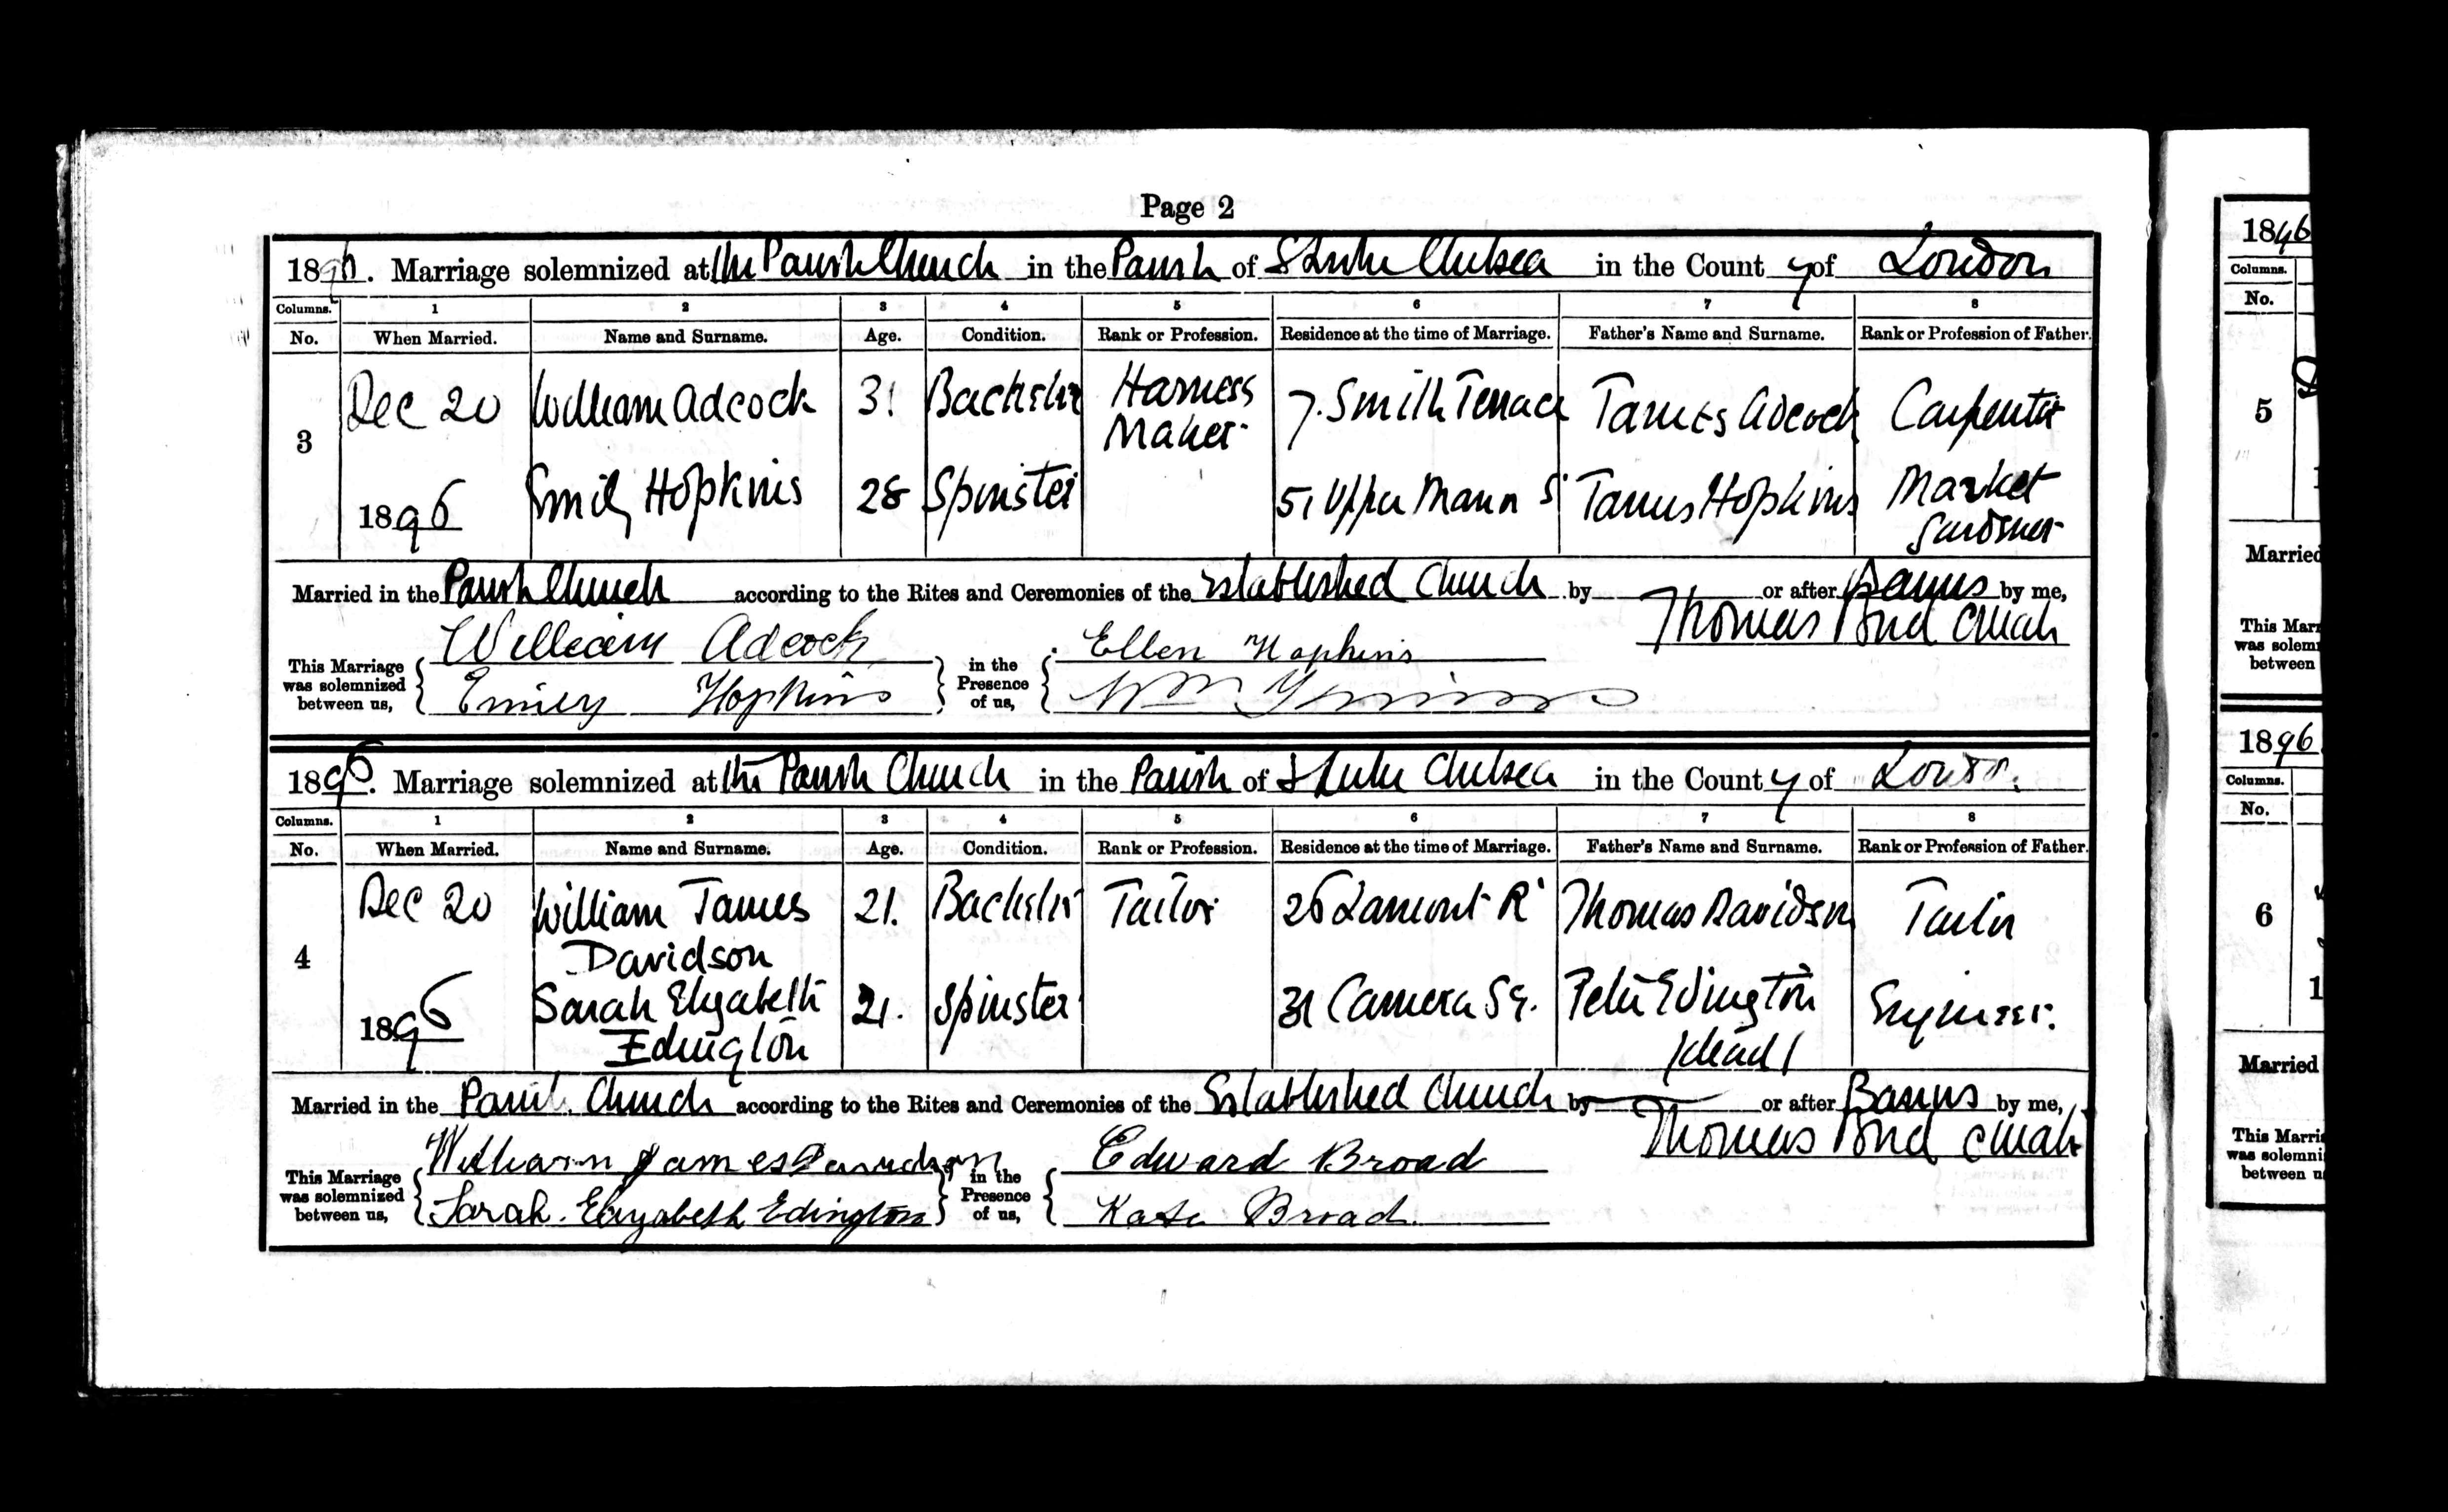 Page 2
1896. Marriage solemnized at the Parish Church in the Parish of St Luke Chelsea in the County of London
Columns. 1 2 3 4 5 6 7 8
No. When Married. Name and Surname. Age. Condition. Rank or Profession. Residence at the time of Marriage. Father's Name and Surname. Rank or Profession of Father.
3 Dec 20 William Adcock 31 Bachelor Harness Maker 7. Smith Terrace James Adcock Carpenter
1896 Emily Hopkins 28 Spinster 51 Upper Mann St James Hopkins Market Gardener
Married in the Parish Church according to the Rites and Ceremonies of the Established Church by or after Banns by me,
Thomas Bond Curate
This Marriage was solemnized between us, William Adcock in the Presence of us, Ellen Hopkins
Emily Hopkins Wm
1896. Marriage solemnized at the Parish Church in the Parish of St Luke Chelsea in the County of London
Columns. 1 2 3 4 5 6 7 8
No. When Married. Name and Surname. Age. Condition. Rank or Profession. Residence at the time of Marriage. Father's Name and Surname. Rank or Profession of Father.
4 Dec 20 William James Davidson 21. Bachelor Tailor 26 Lamont Rd Thomas Davidson Tailor
1896 Sarah Elizabeth Edington 21. Spinster 31 Camera Sq. Peter Edington (dead) Engineer.
Married in the Parish Church according to the Rites and Ceremonies of the Established Church by or after Banns by me,
Thomas Bond Curate
This Marriage was solemnized between us, William James Davidson in the Presence of us, Edward Broad
Sarah Elizabeth Edington Kate Broad
1896
Columns.
No.
5
Married
This Marr
was solem
between
1896.
Columns.
No.
6
1
Married
This Marri
was solemni
between u